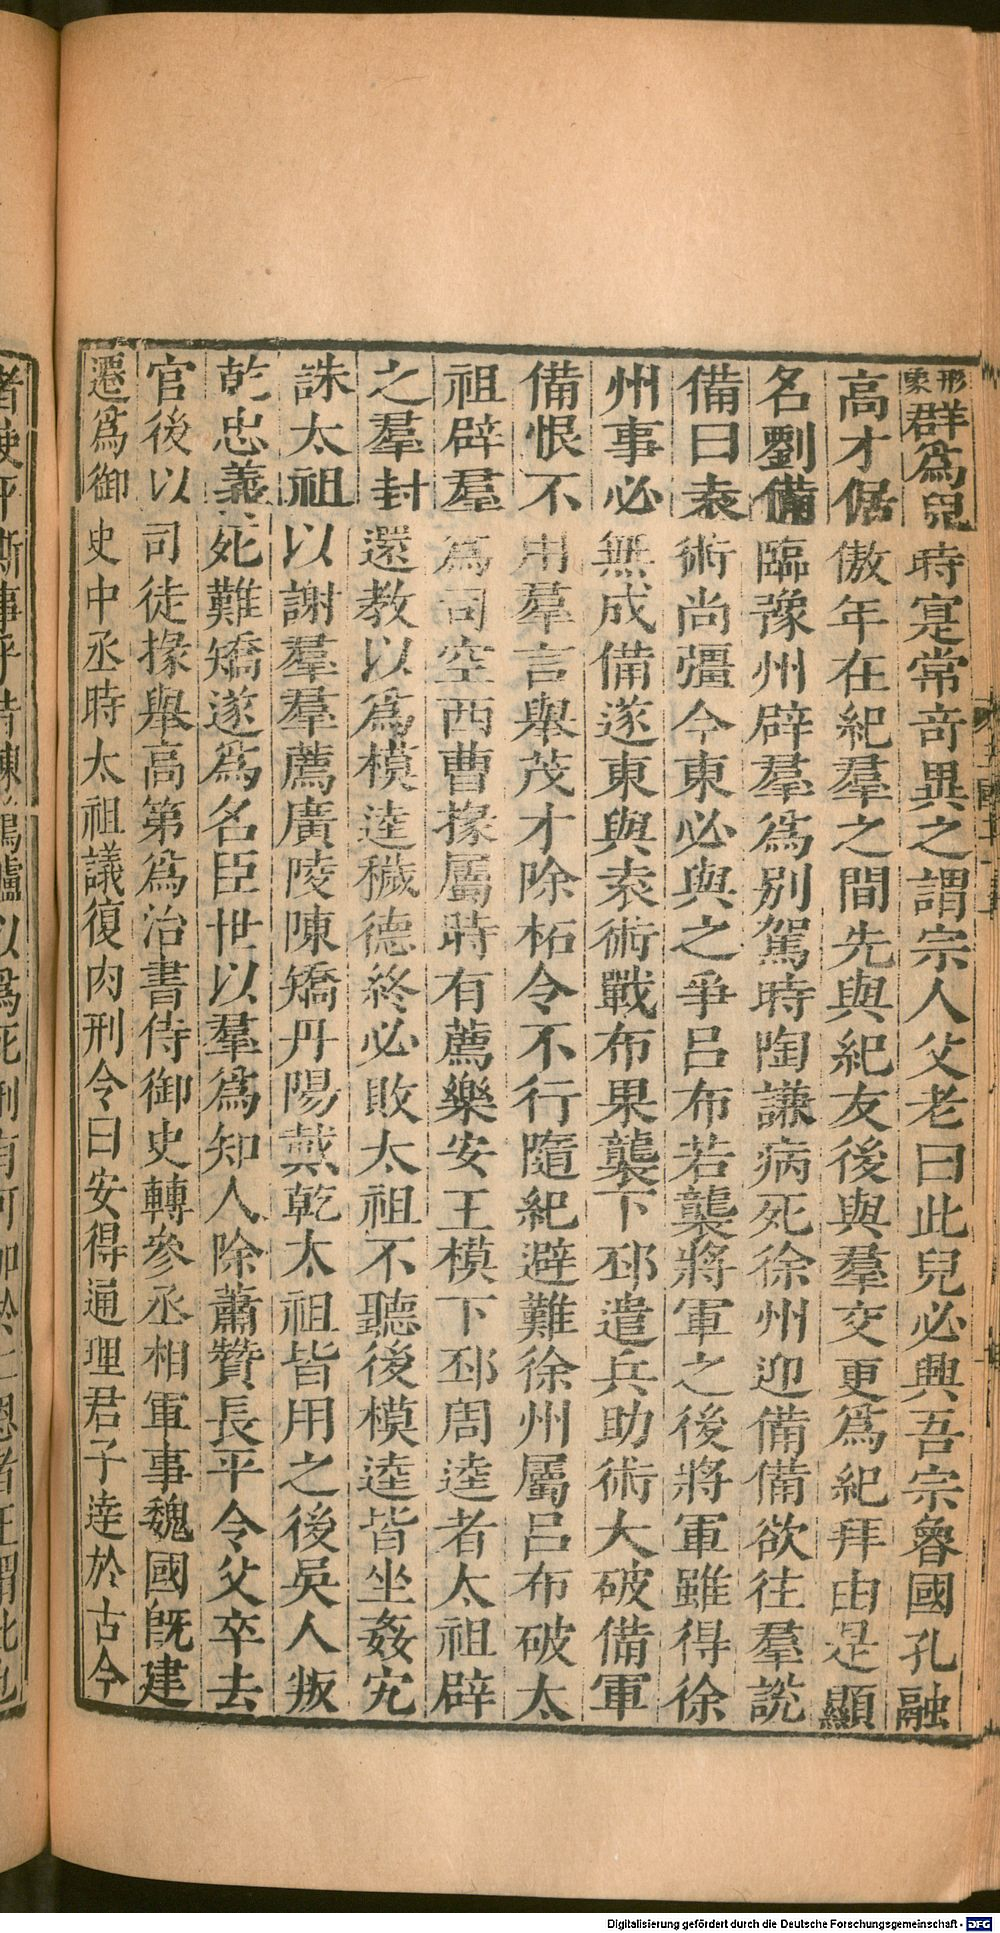 形象群爲兒時寔常奇異之謂宗人父老曰此兒必興吾宗魯國孔融
高才倨傲年在紀羣之間先與紀友後與羣交更爲紀拜由是顯
名劉備臨豫州辟羣爲別駕時陶謙病死徐州迎備備欲往羣說
備曰袁術尚彊今東必與之爭呂布若襲將軍之後將軍雖得徐
州事必無成備遂東與袁術戰布果襲下邳遣兵助術大破備軍
備恨不用羣言舉茂才除柘令不行隨紀避難徐州屬呂布破太
祖辟羣爲司空西曹掾屬時有薦樂安王模下邳周逵者太祖辟
之羣封還教以爲模逵穢德終必敗太祖不聽後模逵皆坐姦宄
誅太祖以謝羣羣薦廣陵陳矯丹陽戴乾太祖皆用之後吳人叛
乾忠義死難矯遂爲名臣世以羣爲知人除蕭贊長平令父卒去
官後以司徒掾舉高第爲治書侍御史轉參丞相軍事魏國旣建
遷爲御史中丞時太祖議復肉刑令曰安得通理君子達於古今
Digitalisierung gefördert durch die Deutsche Forschungsgemeinschaft - DFG